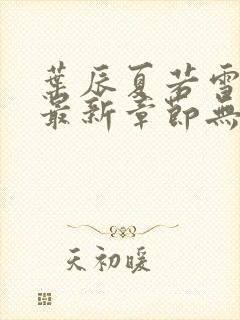 葉辰夏若雪
最新章節無
天初暖